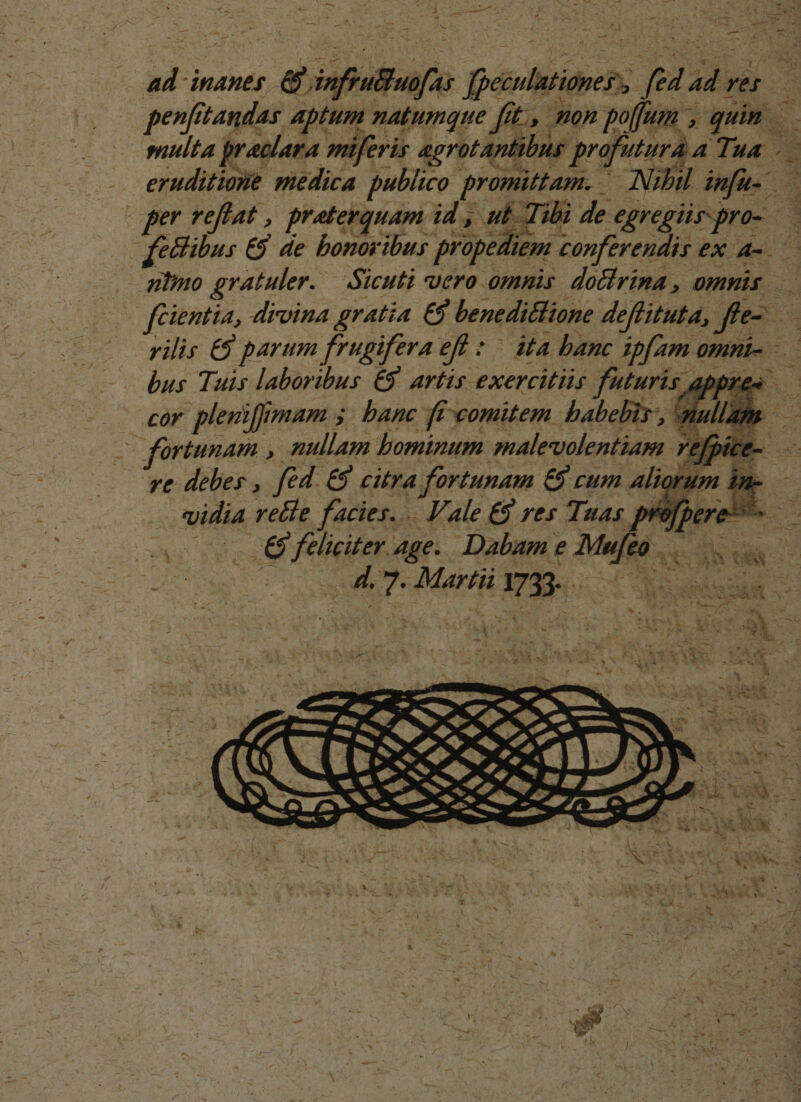 ad inanes & infructuoſas ſpeculationes, ſed ad res
penſitandas aptum natumque ſit, non poſſum, quin
multa præclara miſeris ægrotantibus profutura a Tua
eruditione medica publico promittam. Nihil inſu-
per reſtat, præterquam id, ut Tibi de egregiis pro-
fectibus & de honoribus propediem conferendis ex a-
nimo gratuler. Sicuti vero omnis doctrina, omnis
ſcientia, divina gratia & benedictione deſtituta, ſte-
rilis & parum frugifera eſt: ita hanc ipſam omni-
bus Tuis laboribus & artis exercitiis futuris appre-
cor pleniſſimam; hanc ſi comitem habebis, nullam
fortunam, nullam hominum malevolentiam reſpice-
re debes, ſed & citra fortunam & cum aliorum in-
vidia recte facies. Vale & res Tuas proſpere
& feliciter age. Dabam e Muſeo
d. 7. Martii 1733.